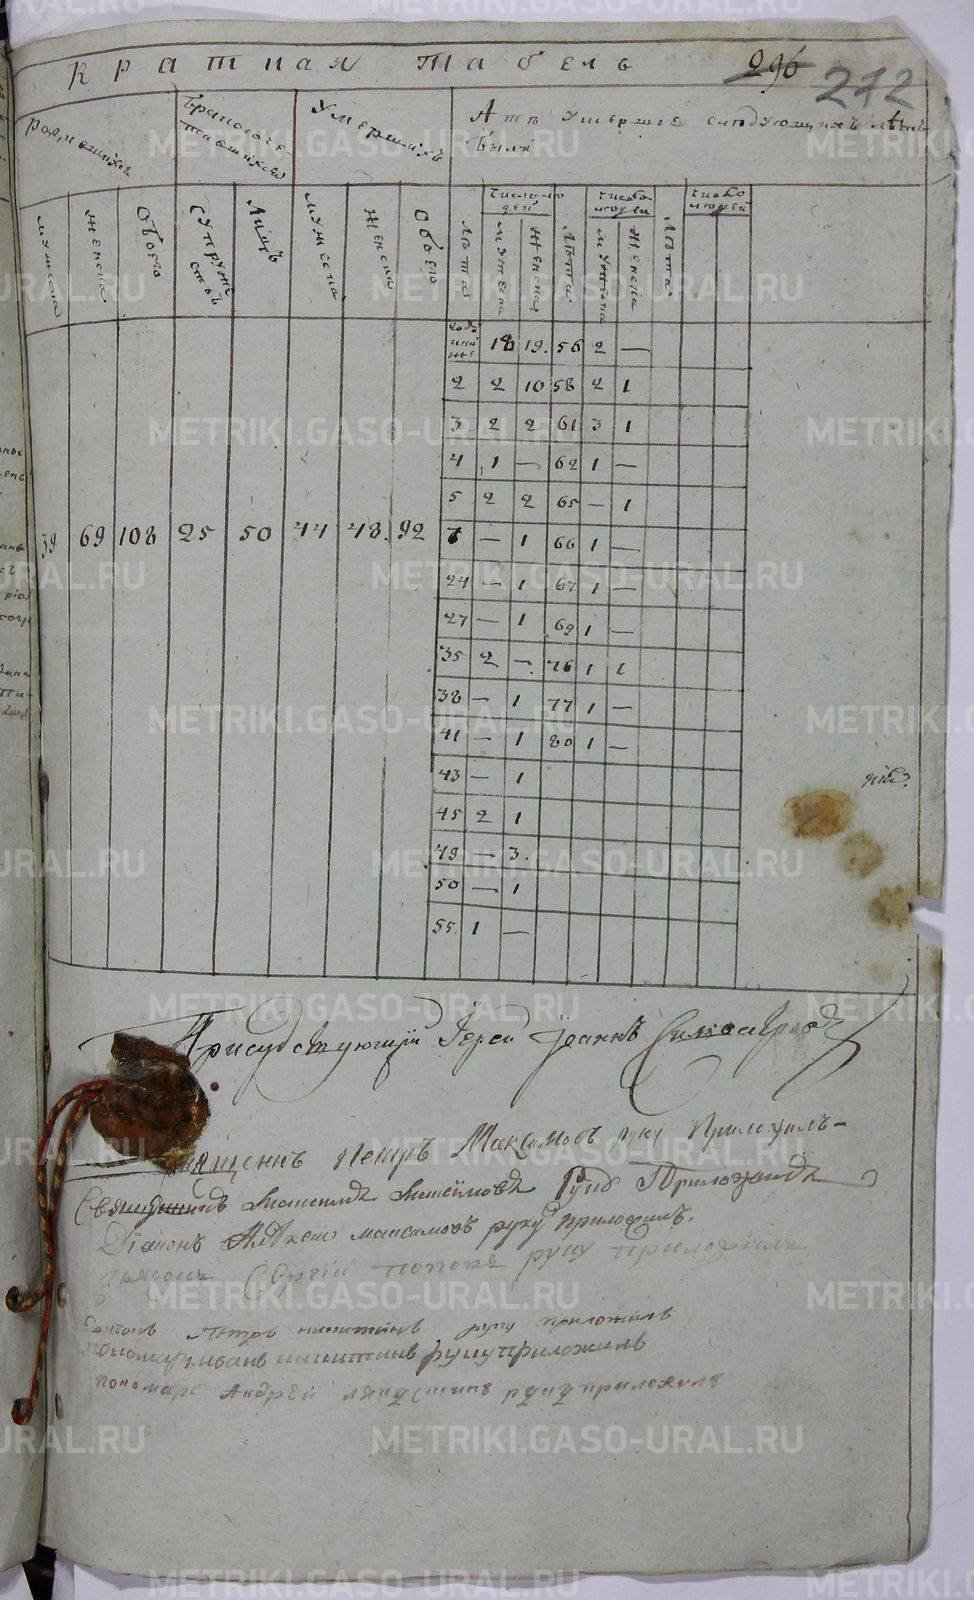 Краткая табель
296 272
Родившихся
Умершихъ
Лѣта умершïе слѣдующихъ лѣтъ
были
мужеска
женска
обоего
супру
ствъ
лицъ
мужеска
женска
обоего
лѣта
число лю
дей
мужеска
женска
лѣта
число
людей
мужеска
женска
лѣта
число
людей
18 19. 56 2 —
2 2 10 58 2 1
3 2 2 61 3 1
4 1 — 62 1 —
5 2 2 65 — 1
39 69 108 25 50 44 48. 92 7 — 1 66 1 —
24 — 1 67 1 —
27 — 1 69 1 —
35 2 — 76 1 1
38 — 1 77 1 —
41 — 1 80 1 —
43 — 1
45 2 1
49 — 3.
50 — 1
55 1 —
Присудствующïй Iерей Iоаннъ
Петръ Максимовъ руку Приложилъ
Священникъ Максимовъ Руку Приложилъ
Дïаконъ Алѣксей максимовъ руку приложилъ.
Сергïй поповъ руку приложилъ
Пѣтръ никитинъ руку приложилъ
пономарь иванъ никитинъ руку приложилъ
пономарь Андрей руку приложилъ
METRIKI.GASO-URAL.RU